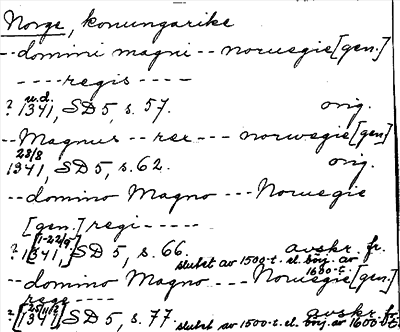 Norge, konungarike
--domini magni--noruegie[gen.]
----regis----
? u.d. 1341, SD 5, s. 57. orig.
--Magnus--rex---norwegie[gen.]
23/8
1341, SD 5, s. 62. orig.
--domino Magno---Noruegie
[gen.] regi-----
? [1-22/9] [1341,] SD 5, s. 66. avskr. fr.
slutet av 1500-t. el. börj. av 1600-t.
--domino Magno---Noruegie[gen.]
rege----
? [1341,] SD 5, s. 77. avskr. fr.
slutet av 1500-t. el. börj. av 1600-t.